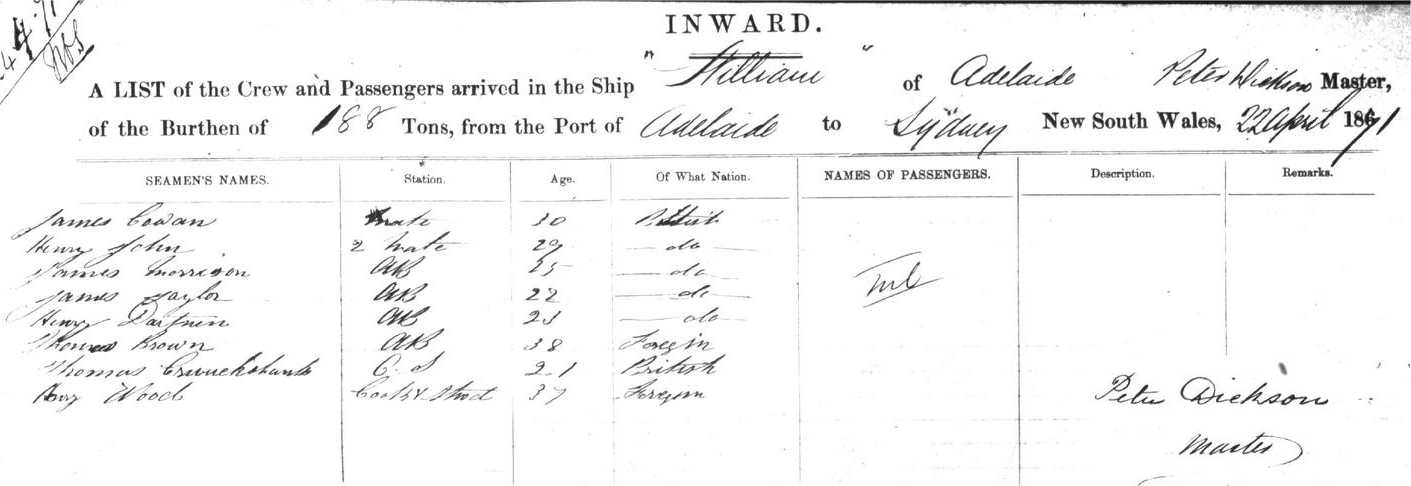 INWARD.
A LIST of the Crew and Passengers arrived in the Ship "William" of Adelaide Peter Dickson Master,
of the Burthen of 188 Tons, from the Port of Adelaide to Sydney New South Wales, 22 April 1871
SEAMEN'S NAMES. Station. Age. Of What Nation. NAMES OF PASSENGERS. Description. Remarks.
James Cowan Mate 30 British
Henry John 2 Mate 29 do
James Morrison AB 25 do
James Taylor AB 22 do Nil
Henry AB 23 do
Thomas Brown AB 38 Foregin
Thomas Cruickshank O.S 21 British
Wood Cook & Stod 37 Foregin
Peter Dickson
Master